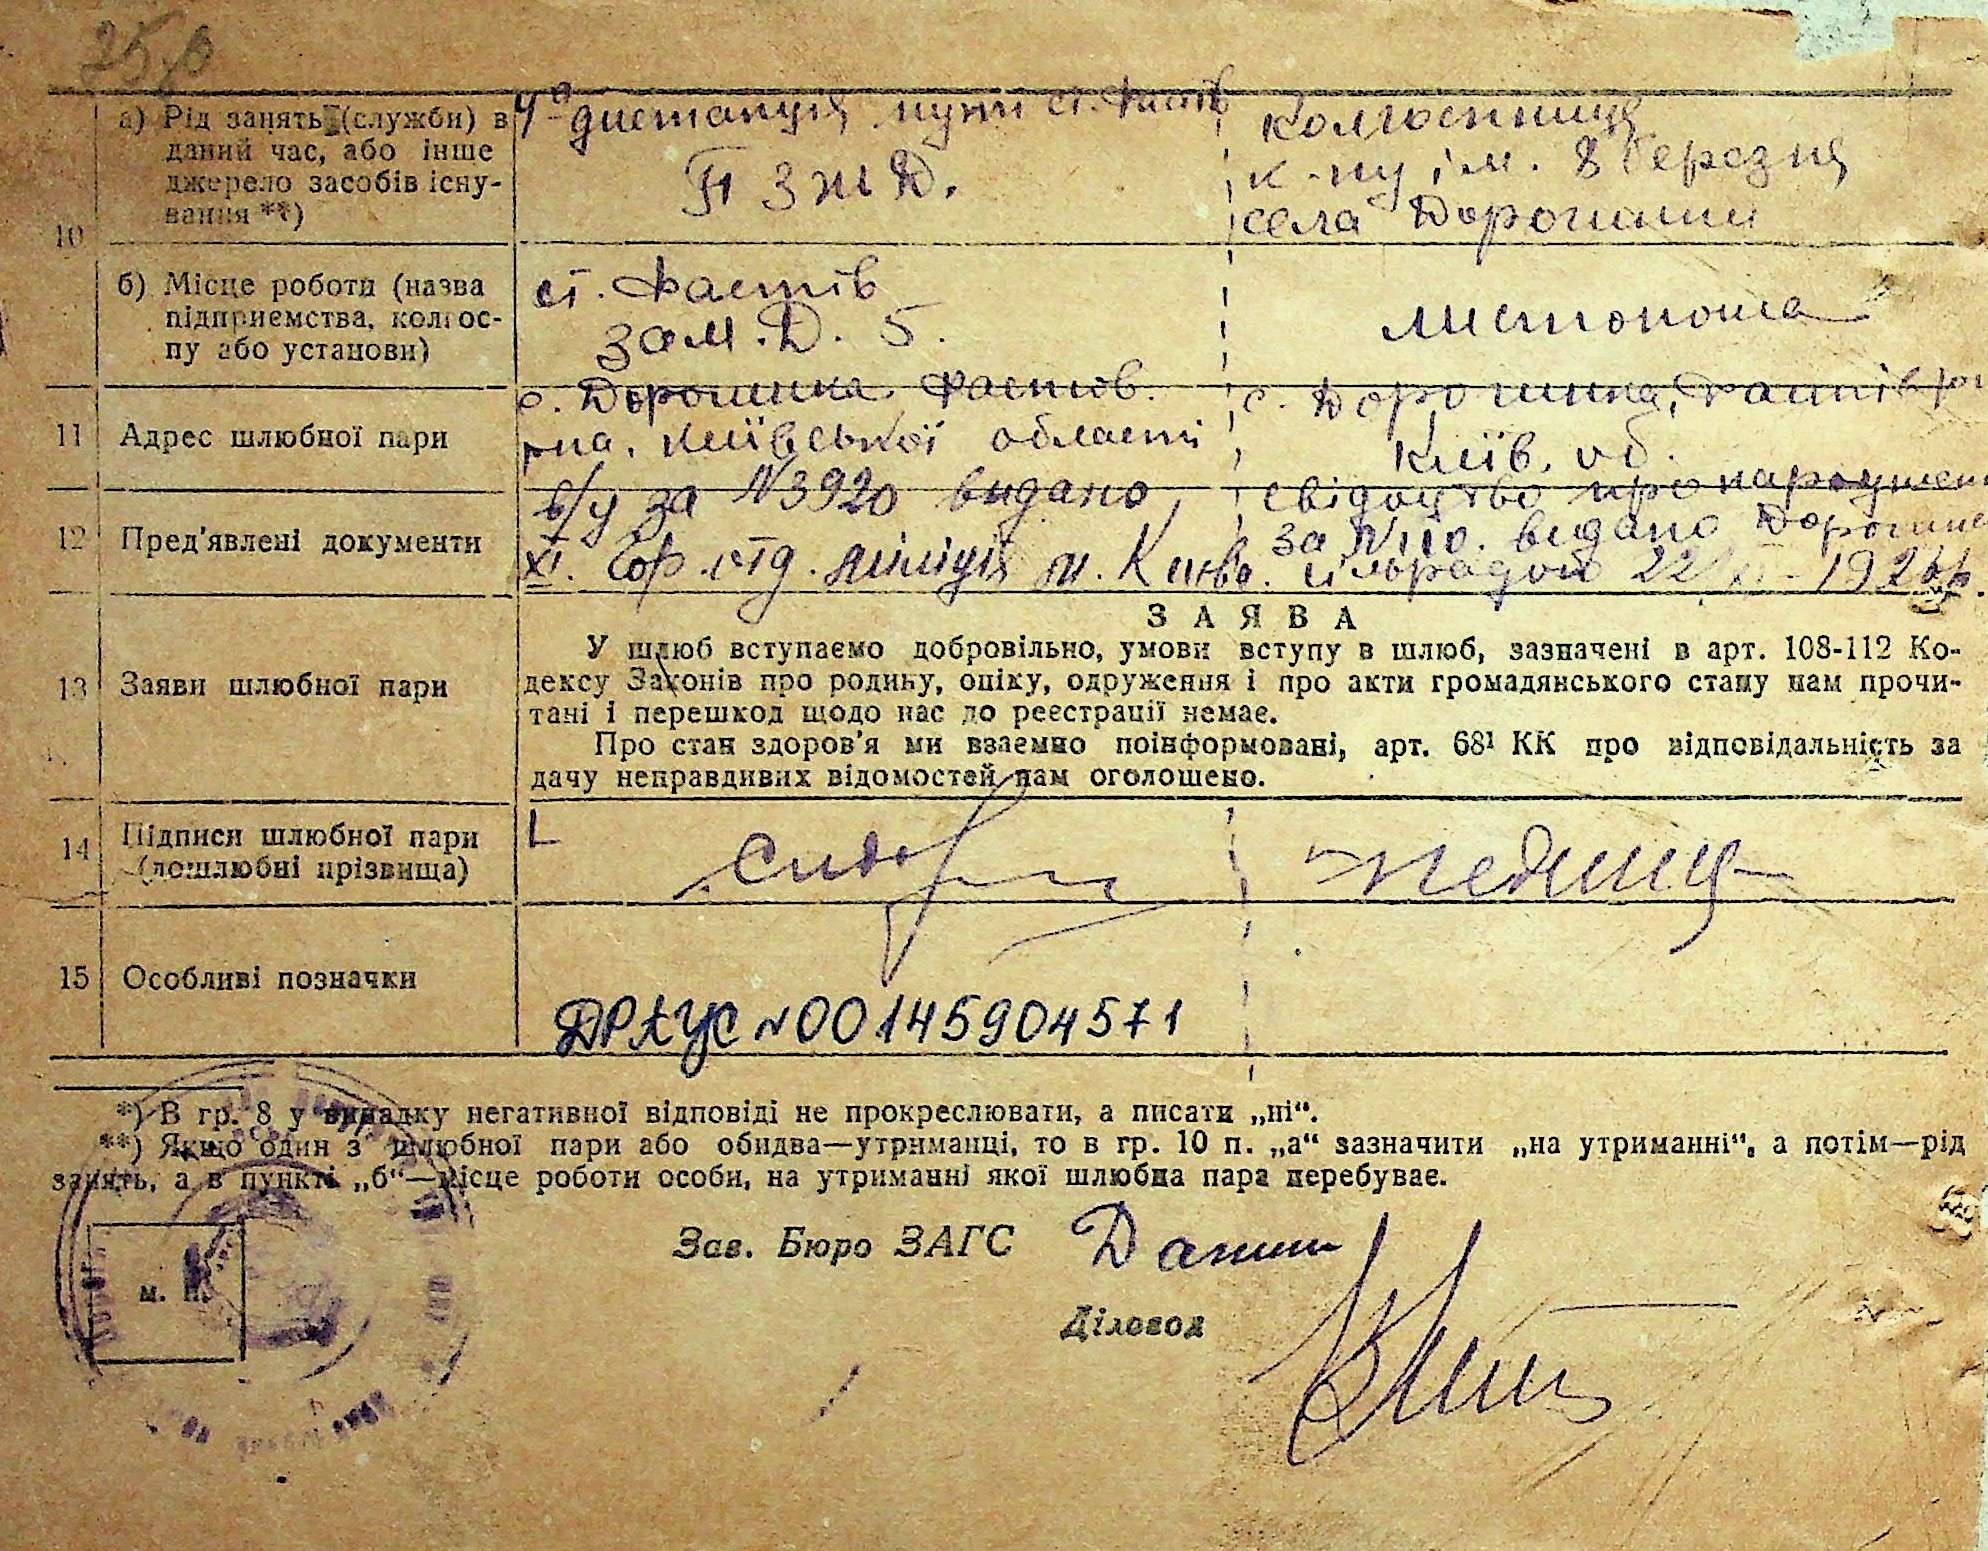 а) Рід занять (служби) в даний час, або інше джерело засобів існування **)
4а дистанція пути ст. Фастів
П З Ж Д.
Колгоспниця
к-пу ім. 8 Березня
села Дорогинки
10
б) Місце роботи (назва підприємства, колгоспу або установи)
ст. Фастів
зам. Д. 5.
листоноша
11
Адрес шлюбної пари
с. Дорогинка Фастов.
рна. Київської області
с. Дорогинка, Фастів рн
Київ. об.
12
Пред'явлені документи
в/у за N3920 видано
XI. Гор. отд. міліція м. Києва.
свідоцтво про народжен
за N110. видано Дорогинс
сільрадой 22
13
Заяви шлюбної пари
ЗАЯВА
У шлюб вступаємо добровільно, умови вступу в шлюб, зазначені в арт. 108-112 Ко-
дексу Законів про родину, опіку, одруження і про акти громадянського стану нам прочи-
тані і перешкод щодо нас до реєстрації немає.
Про стан здоров'я ми взаємно поінформовані, арт. 68¹ КК про відповідальність за
дачу неправдивих відомостей нам оголошено.
14
Підписи шлюбної пари
(дошлюбні прізвища)
15
Особливі позначки
ДРАЦС N00145904571
*) В гр. 8 у випадку негативної відповіді не прокреслювати, а писати „ні“.
**) Якщо один з шлюбної пари або обидва—утриманці, то в гр. 10 п. „а“ зазначити „на утриманні“, а потім—рід
занять, а в пункті „б“—місце роботи особи, на утриманні якої шлюбна пара перебуває.
Зав. Бюро ЗАГС
м. п.
Діловод